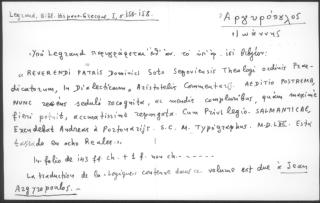 Legrand, Bibl. Hispano-Grecque, I, σ. 158-158.
Ἀργυρόπουλος
Ἰωάννης
Ὑπὸ Legrand περιγράφεται
« REVERENDI PATRIS Dominici Soto Segoviensis Theologi ordinis Præ-
dicatorum, In Dialecticam, Aristotelis Commentarii. Aeditio POSTREMA,
NUNC sedulo recognita, ac mendis compluribus, quàm maximè
fieri potuit, accuratissime repurgata. Cum Privilegio. SALMANTICAE,
Excudebat Andreas à Portonarijs. S. C. M. Typographus. M.D.LIII. Esta
tassado en ocho Reales »
In-folio de 143 ff ch. + 1 f. non ch
La traduction de la Logique contenue dans ce volume est due à Jean
Argyropoulos.